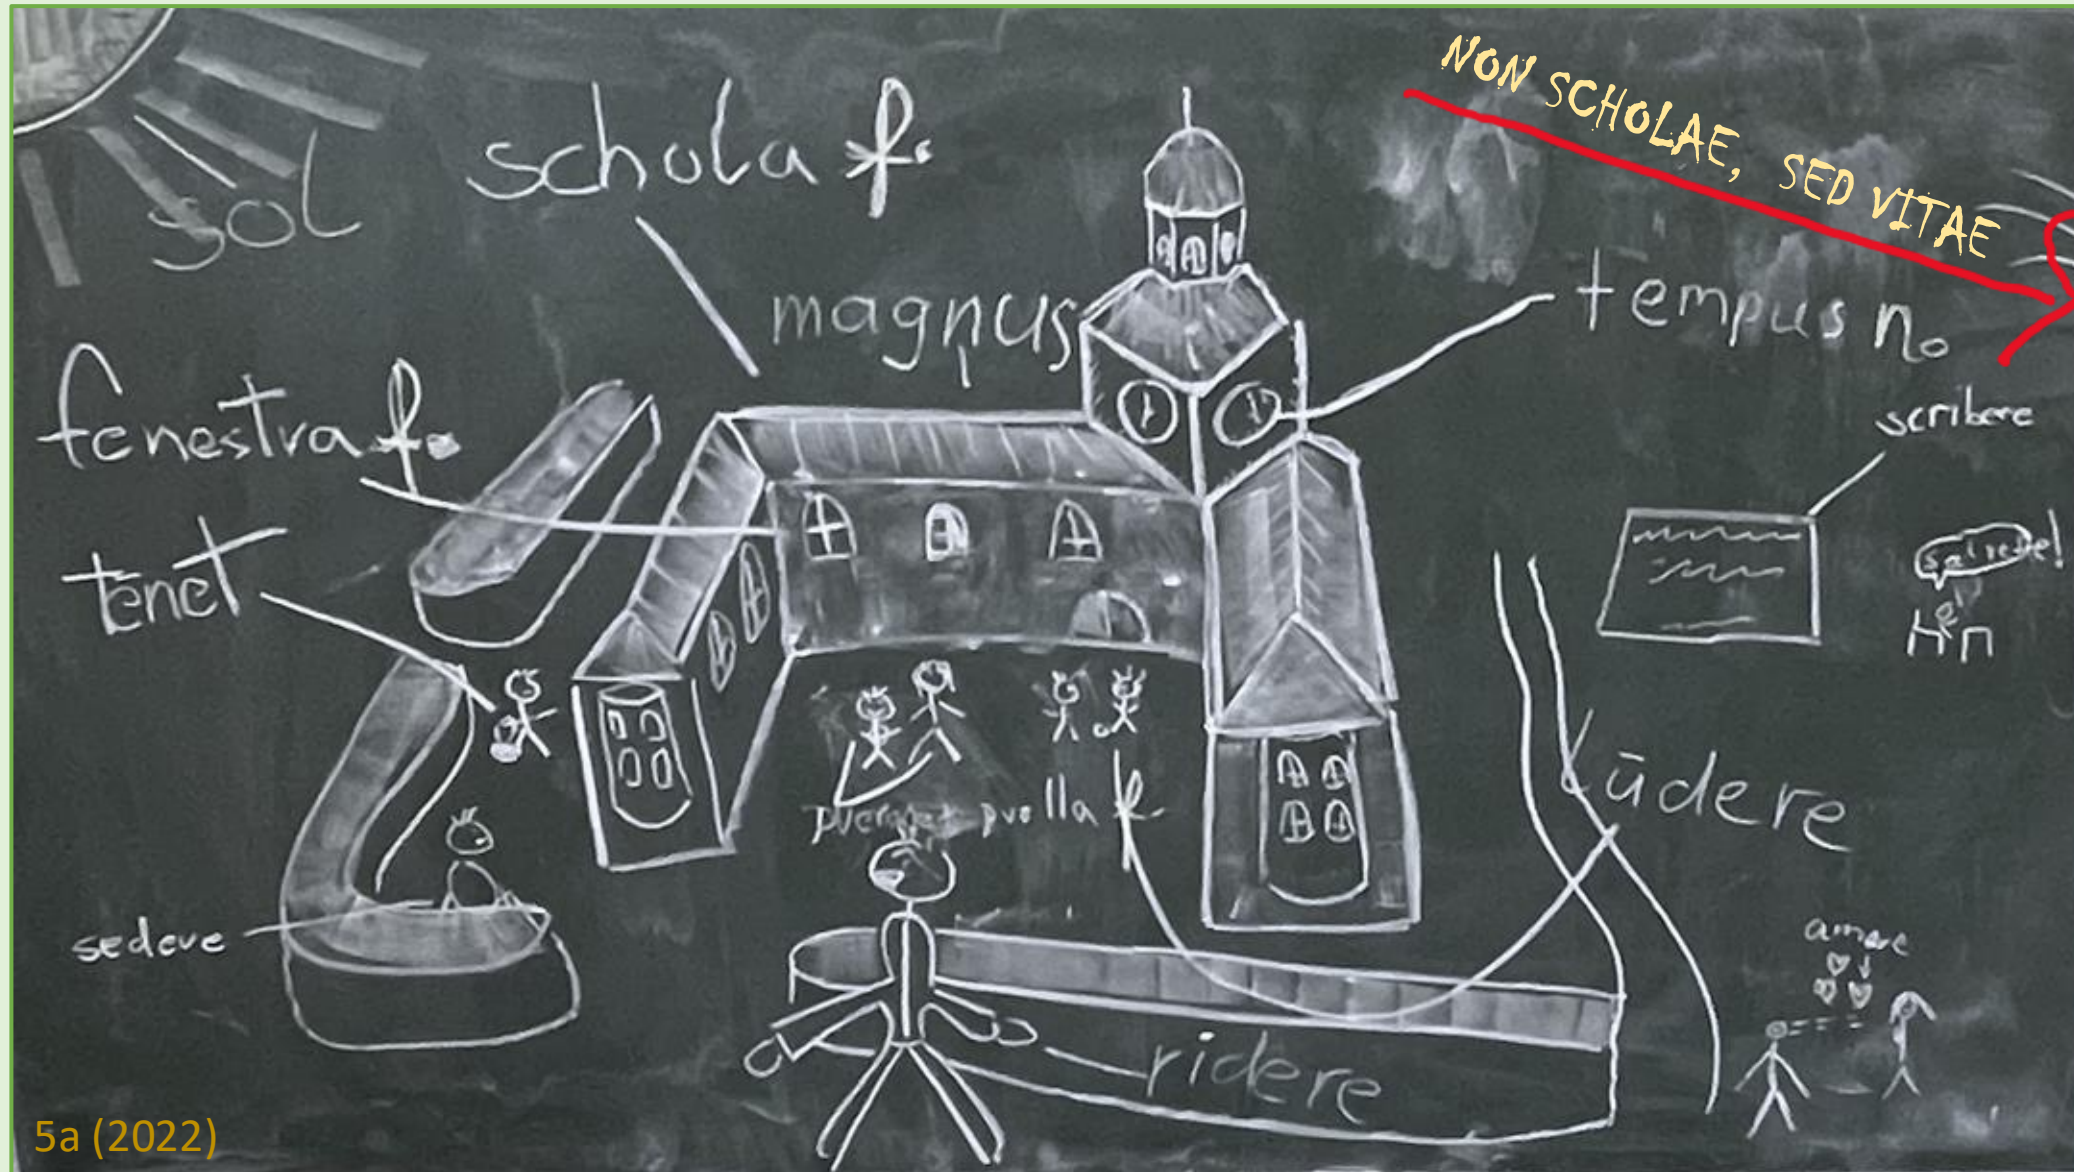 NON SCHOLAE, SED VITAE
schola f.
sol
magnus
tempus n.
fenestra f.
scribere
tenet
salvete!
lūdere
puer et puella f.
sedere
amare
ridere
5a (2022)